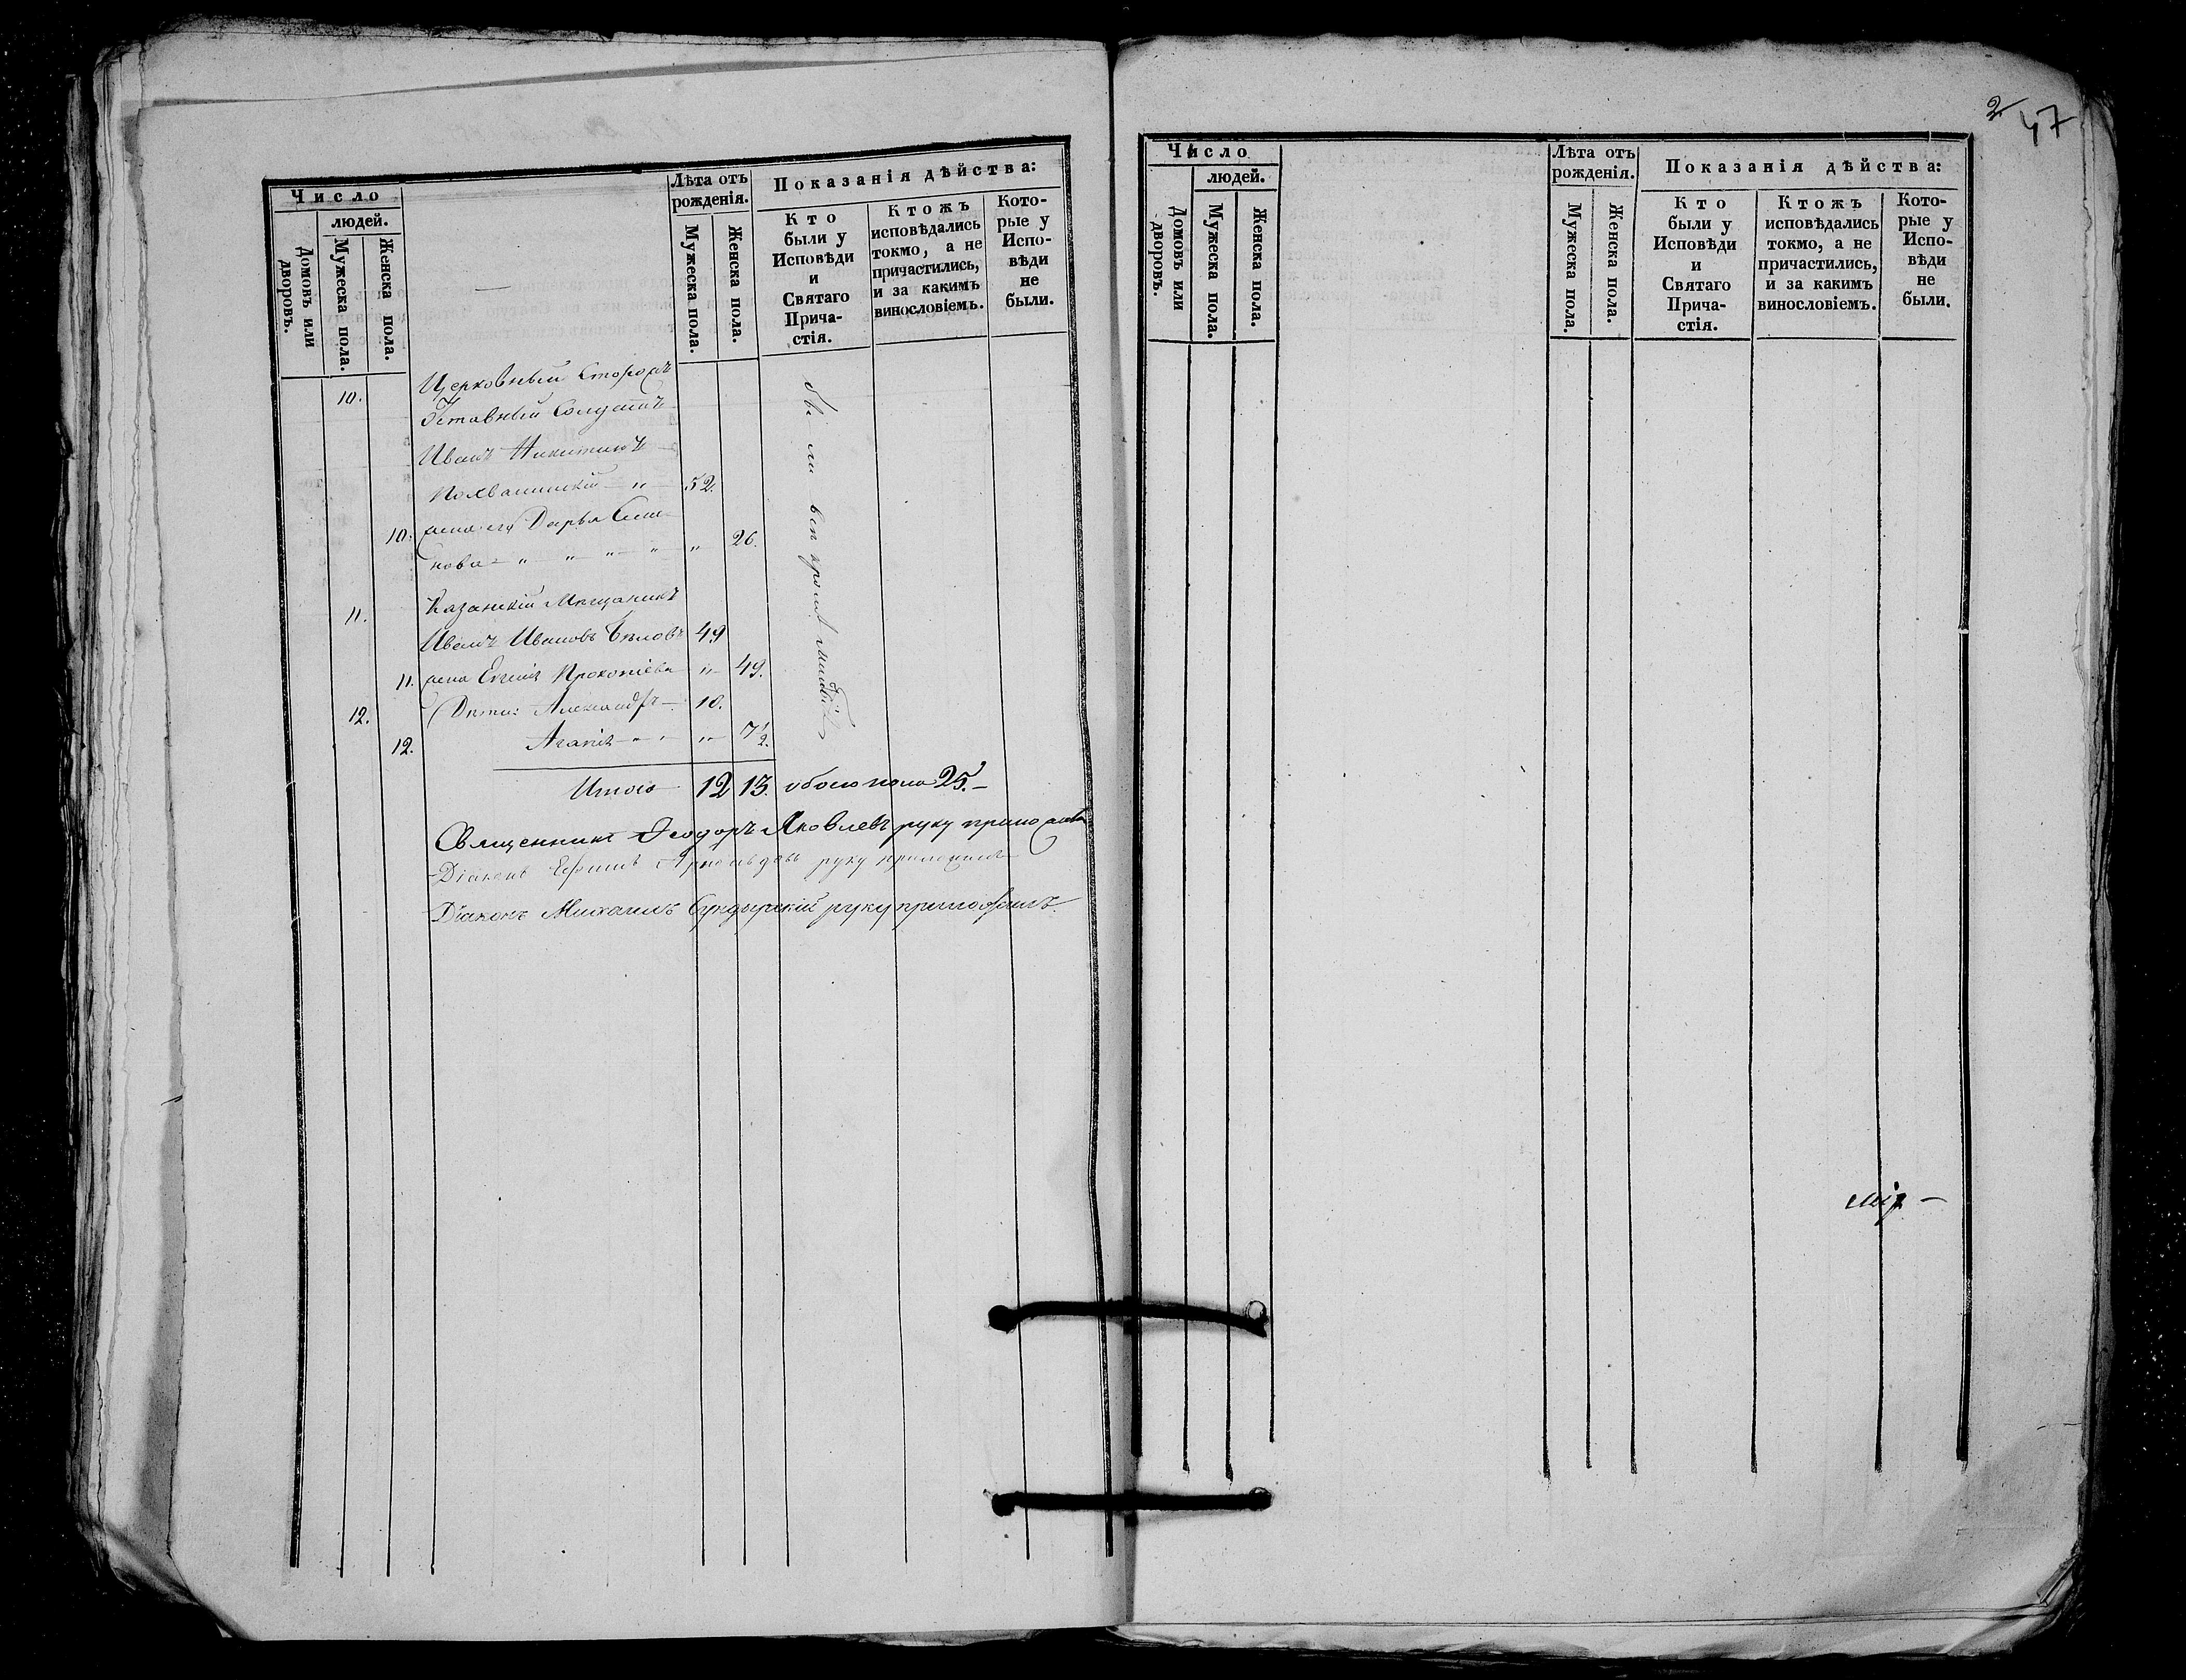 Число
людей.
Домовъ или дворовъ.
Мужеска пола.
Женска пола.
Лѣта отъ
рожденія.
Мужеска пола.
Женска пола.
Показанія дѣйства:
Кто
были у
Исповѣди
и
Святаго
Прича-
стія.
Ктожъ
исповѣдались
токмо, а не
причастились,
и за какимъ
винословіемъ.
Кото-
рые у
Испо-
вѣди
не
были.
10. Церковный Сторожъ
Отставный Солдатъ
Иванъ Никитинъ
52.
10. жена его Дарья Семе-
нова — " — " — " — " — " 26.
11. Казанскій Мѣщанинъ
Иванъ Ивановъ Бѣловъ 49
11. жена Евгенія Прокопіева " 49.
12. Дѣти: Александръ — 10.
12. Агапія — " — " 7½.
были всѣ кромѣ
Итого 12 13. обоего пола 25. —
Священникъ Ѳеодоръ Яковлевъ руку приложилъ
Діаконъ Ефимъ руку приложилъ
Діаконъ Михаилъ Сундырскій руку приложилъ.
2
47
Число
людей.
Домовъ или дворовъ.
Мужеска пола.
Женска пола.
Лѣта отъ
рожденія.
Мужеска пола.
Женска пола.
Показанія дѣйства:
Кто
были у
Исповѣди
и
Святаго
Прича-
стія.
Ктожъ
исповѣдались
токмо, а не
причастились,
и за какимъ
винословіемъ.
Кото-
рые у
Испо-
вѣди
не
были.